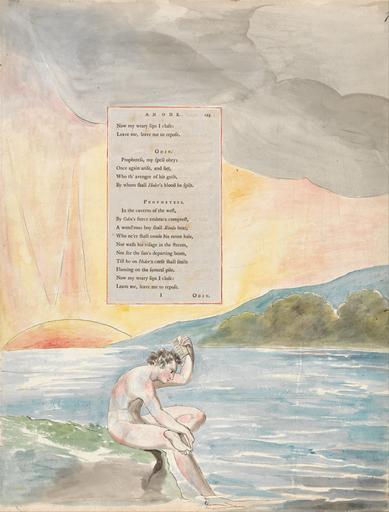 AN ODE.
Now my weary lips I cloſe:
Leave me, leave me to repoſe.
ODIN.
Propheteſs, my ſpell obey:
Once again ariſe, and ſay,
Who th' avenger of his guilt,
By whom ſhall Hoder's blood be ſpilt.
PROPHETESS.
In the caverns of the weſt,
By Odin's fierce embrace compreſt,
A wond'rous boy ſhall Rinda bear,
Who ne'er ſhall comb his raven hair,
Nor waſh his viſage in the ſtream,
Nor ſee the ſun's departing beam,
Till he on Hoder's corſe ſhall ſmile
Flaming on the funeral pile.
Now my weary lips I cloſe:
Leave me, leave me to repoſe.
I ODIN.